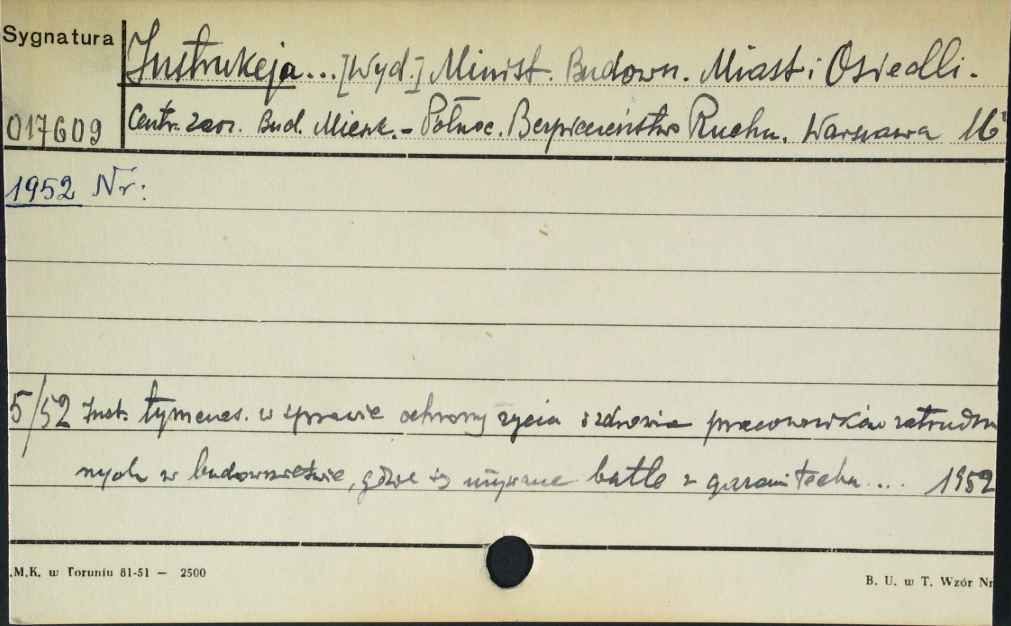 Sygnatura
Instrukcja... [Wyd.] Minist. Budown. Miast i Osiedli.
017609
Centr. Zarz. Bud. Mieszk. - Północ. Bezpieczeństwo Ruchu. Warszawa 16°
1952 Nr:
5/52 Inst. tymczas. w sprawie ochrony życia i zdrowia pracowników zatrudnio
nych w budownictwie, gdzie są używane butle z gazami techn... 1952
.M.K. w Toruniu 81-51 — 2500
B. U. w T. Wzór Nr